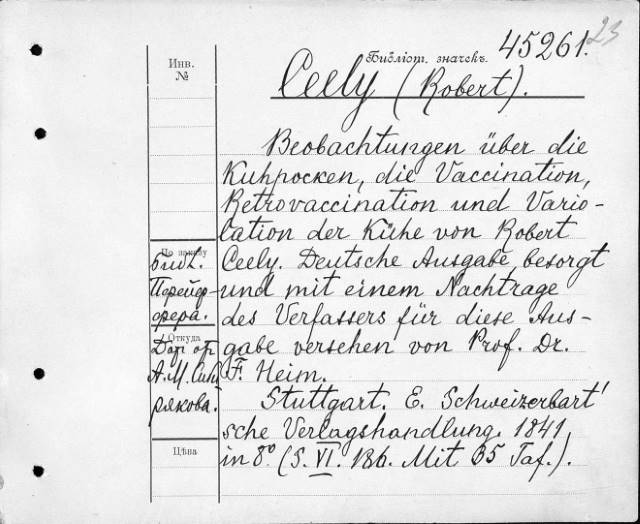 23
45261.
Инв.
№
Библіот. значекъ.
Ceely (Robert).
Beobachtungen über die
Kuhpocken, die Vaccination,
Retrovaccination und Vario-
lation der Kühe von Robert
Ceely. Deutsche Ausgabe besorgt
und mit einem Nachtrage
des Verfassers für diese Aus-
gabe versehen von Prof. Dr.
F. Heim.
Stuttgart. E. Schweizerbart'
sche Verlagshandlung. 1841.
in 8º (S. VI. 186. Mit 35 Taf.).
По заказу
Библ.
Откуда
А. М. Сиби
рякова.
Цѣна